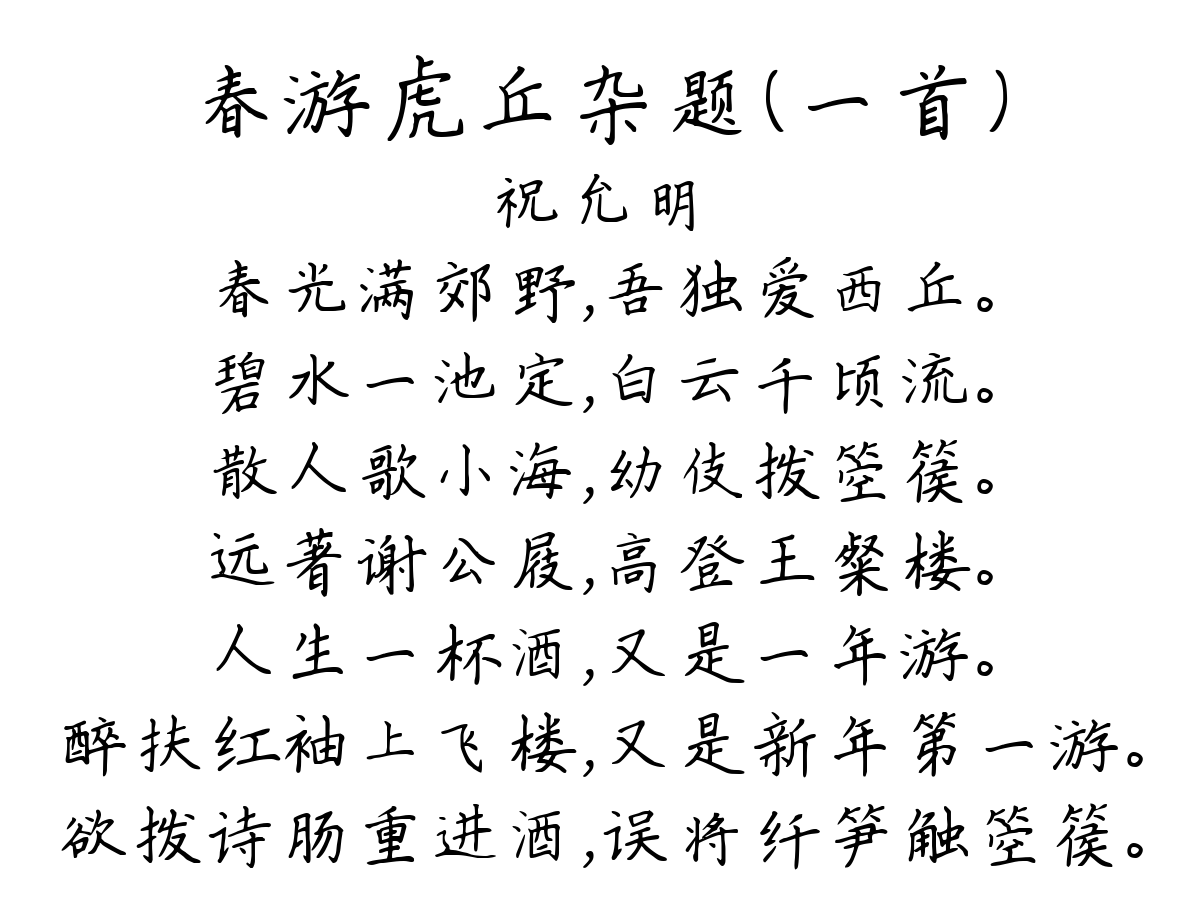 春游虎丘杂题(一首)
祝允明
春光满郊野,吾独爱西丘。
碧水一池定,白云千顷流。
散人歌小海,幼伎拨箜篌。
远著谢公屐,高登王粲楼。
人生一杯酒,又是一年游。
醉扶红袖上飞楼,又是新年第一游。
欲拨诗肠重进酒,误将纤笋触箜篌。